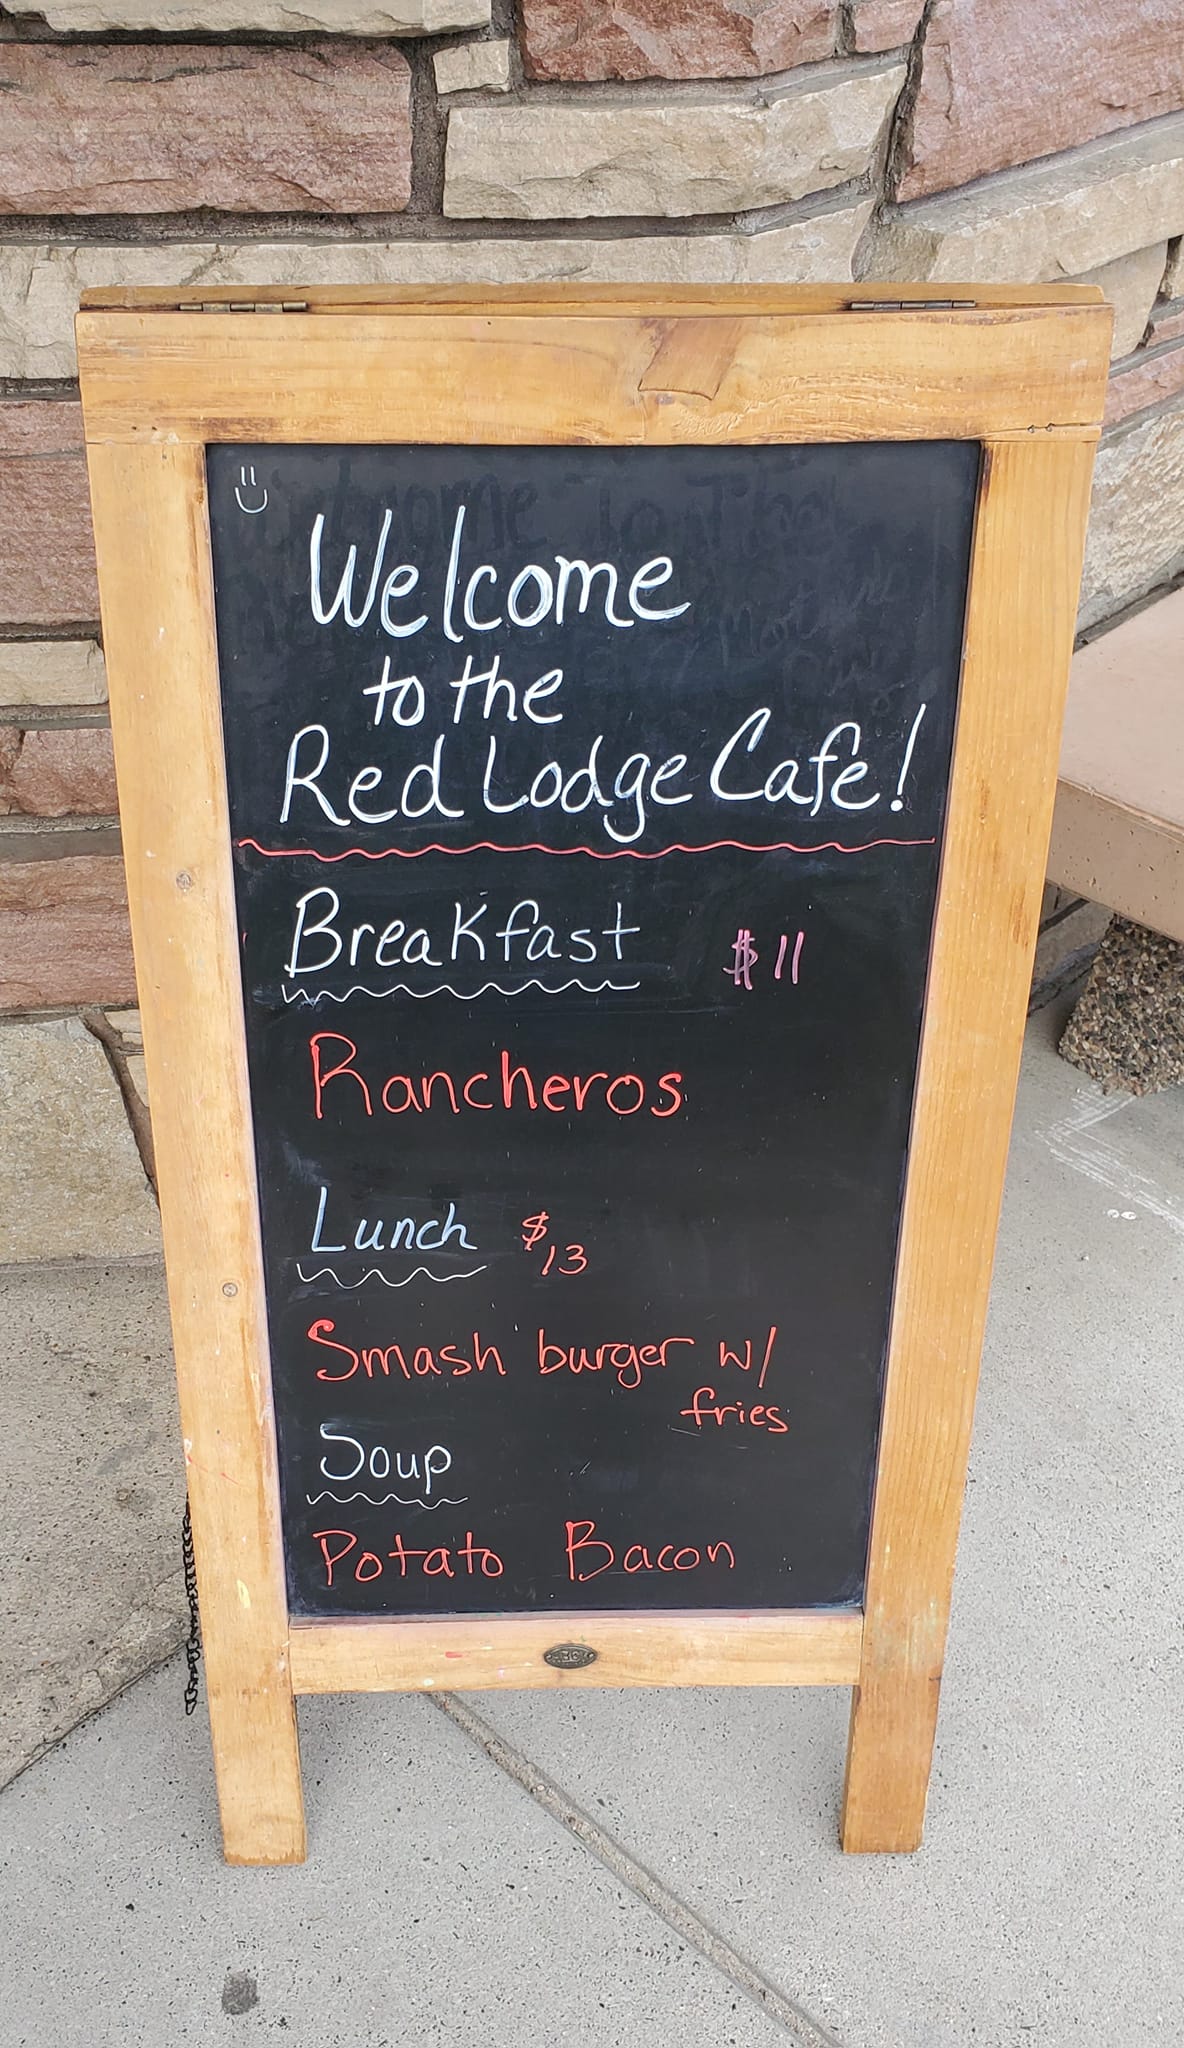 Welcome
to the
Red Lodge Cafe!
Breakfast $11
Rancheros
Lunch $13
Smash burger w/
fries
Soup
Potato Bacon